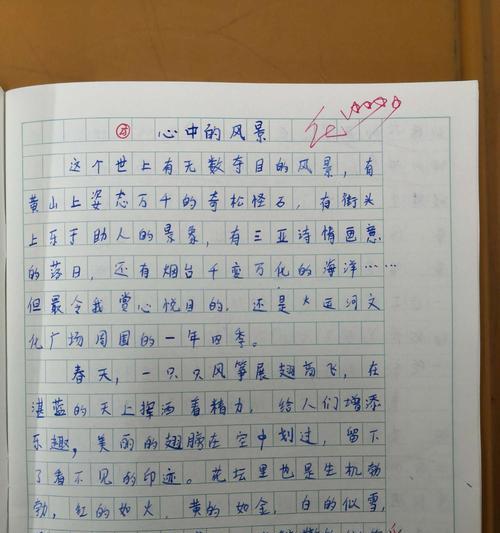 心中的风景
这个世上有无数夺目的风景，有
黄山上姿态万千的奇松怪石，有街头
上乐于助人的景象，有三亚诗情画意
的落日，还有烟台千变万化的海洋……
但最令我赏心悦目的，还是大亚河文
化广场周围的一年四季。
春天，一只只风筝展翅高飞，在
湛蓝的天上挥洒着精力，给人们增添
乐趣，美丽的翅膀在空中划过，留下
了看不见的印迹。花坛里也是生机勃
勃，红的如火，黄的如金，白的似雪，